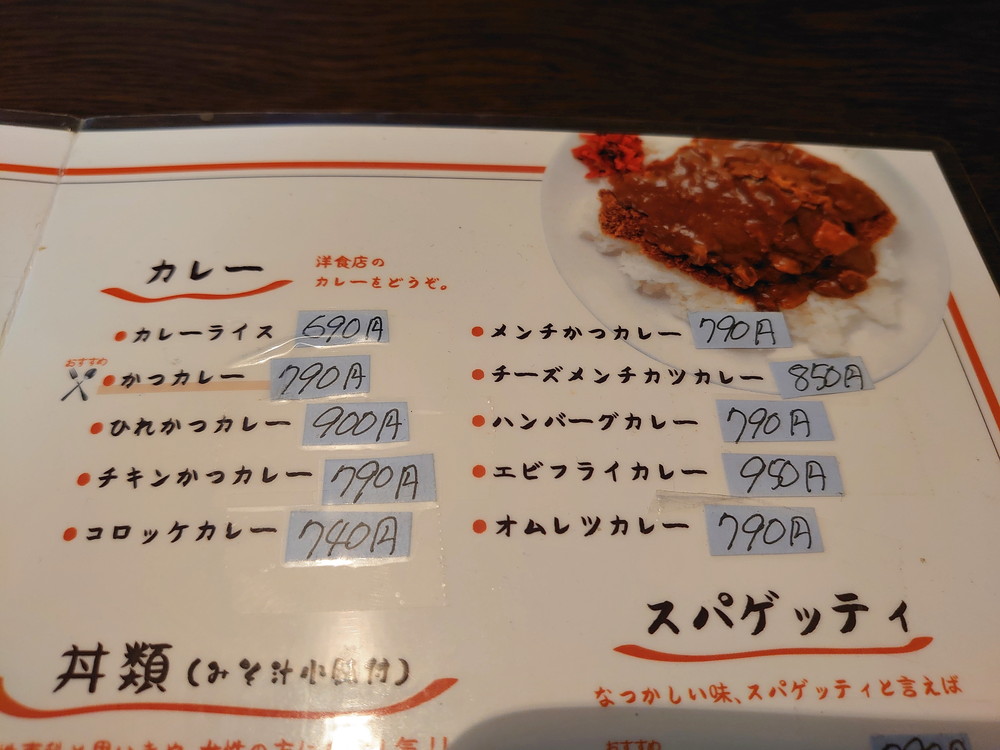 カレー
洋食店の
カレーをどうぞ。
カレーライス 690円
おすすめ
かつカレー 790円
ひれかつカレー 900円
チキンかつカレー 790円
コロッケカレー 740円
メンチかつカレー 790円
チーズメンチカツカレー 850円
ハンバーグカレー 790円
エビフライカレー 950円
オムレツカレー 790円
丼類(みそ汁小鉢付)
スパゲッティ
なつかしい味、スパゲッティと言えば
おすすめ